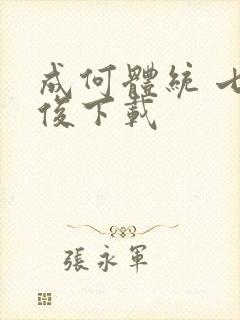 成何體統 七
俊下載
張永軍